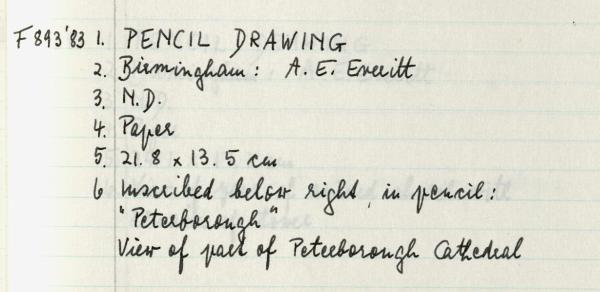 F893'83 1. PENCIL DRAWING
2. Birmingham: A. E. Everitt
3. N.D.
4. Paper
5. 21.8 x 13.5 cm
6 Inscribed below right, in pencil:
"Peterborough"
View of part of Peterborough Cathedral